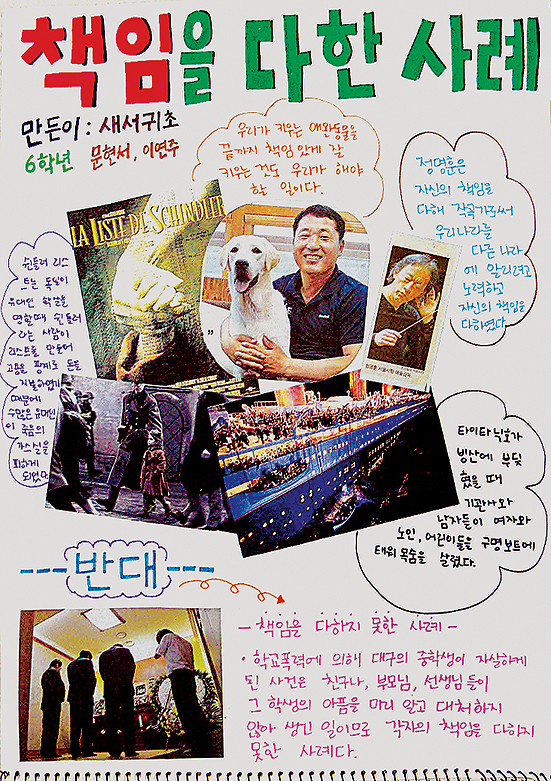 책임을 다한 사례
만든이 : 새서귀초
6학년 문현서, 이연주
우리가 키우는 애완동물을
끝까지 책임 있게 잘
키우는 것도 우리가 해야
할 일이다.
정명훈은
자신의 책임을
다해 작곡가로서
우리나라를
다른 나라
에 알리려고
노력하고
자신의 책임을
다하였다
LA LISTE DE SCHINDLER
쉰들러 리스
트는 독일이
유대인 학살을
명할때 쉰들러
라는 사람이
리스트를 만들어
돈을
지불하였기
때문에
수많은 유대인
이 죽음의
가스실을
피하게
되었다.
타이타닉호가
빙산에 부딪
혔을 때
기관사와
남자들이 여자와
노인, 어린이들을 구명보트에
태워 목숨을 살렸다.
---반대---
- 책임을 다하지 못한 사례 -
· 학교폭력에 의해 대구의 중학생이 자살하게
된 사건은 친구나, 부모님, 선생님들이
그 학생의 아픔을 미리 알고 대처하지
않아 생긴 일이므로 각자의 책임을 다하지
못한 사례다.